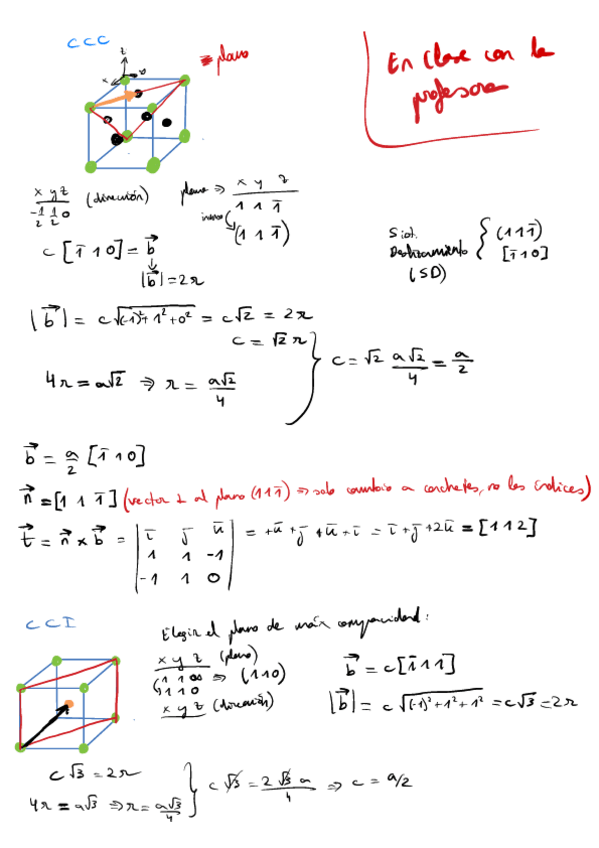 CCC
plano
En clase con la
profesora
z
x
x y z
-1/2 1/2 0
(dirección)
plano ⇒ x y z
1 1 1̄
inverso
(1 1 1̄)
Sist.
Deslizamiento
(SD)
{ (1 1 1̄)
[1̄ 1 0]
c [1̄ 1 0] = b⃗
↓
|b⃗| = 2r
|b⃗| = c√((-1)² + 1² + 0²) = c√2 = 2r
c = √2 r
4r = a√2 ⇒ r = a√2/4
} c = √2 a√2/4 = a/2
b⃗ = a/2 [1̄ 1 0]
n⃗ = [1 1 1̄] (vector ⊥ al plano (1 1 1̄) ⇒ solo cambio a corchetes, no los índices)
t⃗ = n⃗ × b⃗ = | i̅ j̅ u̅ | = +u̅ + j̅ + u̅ + i̅ = i̅ + j̅ + 2u̅ = [1 1 2]
1 1 -1
-1 1 0
CCI
Elegir el plano de máx compacidad:
x y z (plano)
1 1 ∞ ⇒ (1 1 0)
1 1 0
x y z (dirección)
b⃗ = c[1̄ 1 1]
|b⃗| = c√((-1)² + 1² + 1²) = c√3 = 2r
c√3 = 2r
4r = a√3 ⇒ r = a√3/4
} c√3 = 2√3 a/4 ⇒ c = a/2